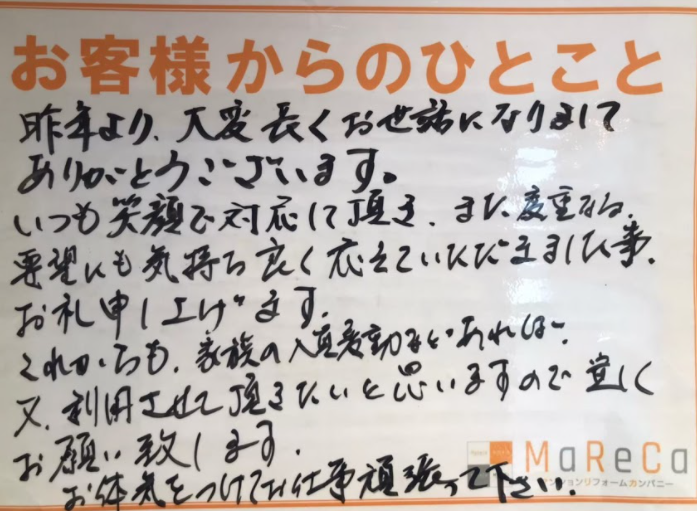 お客様からのひとこと
昨年より、大変長くお世話になりまして
ありがとうございます。
いつも笑顔で対応して頂き、また、度重なる、
要望にも気持ち良く応えていただきました事、
お礼申し上げます。
これからも、家族の人員変動などあれば、
又、利用させて頂きたいと思いますので宜しく
お願い致します。
お体気をつけてお仕事頑張って下さい。
MaReCa
マンションリフォームカンパニー